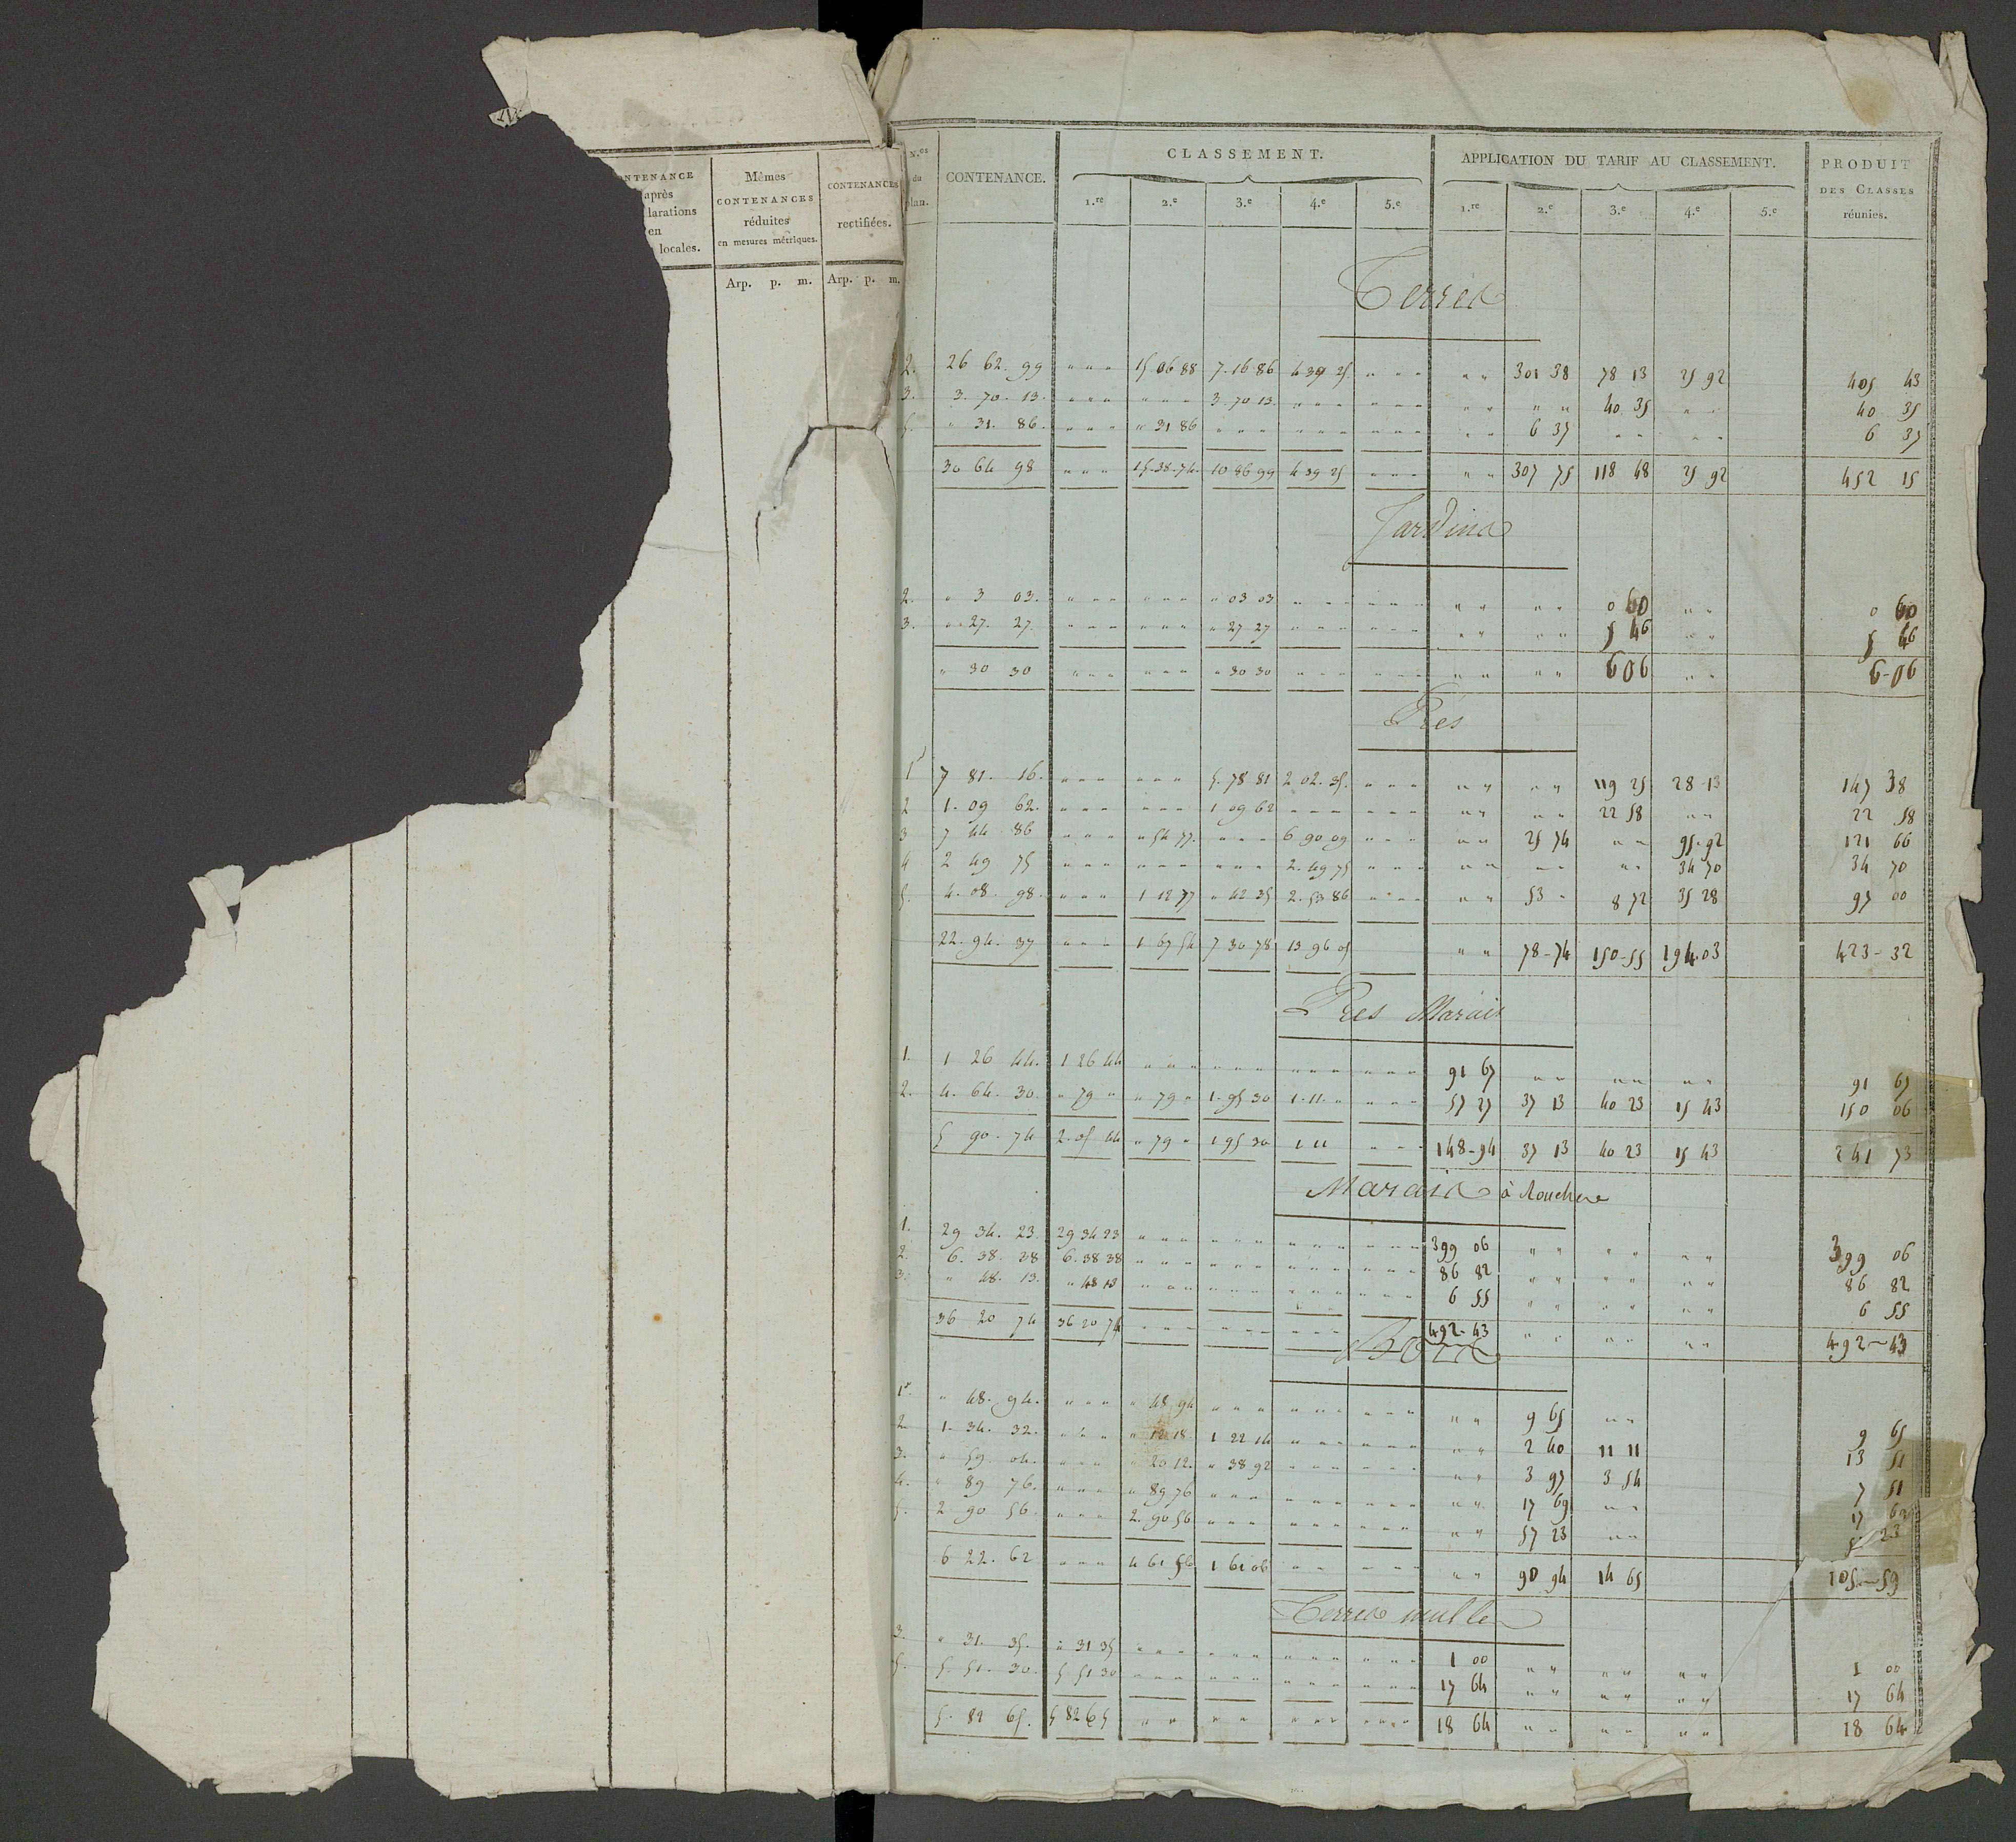 ONTENANCE
après
larations
en
locales.
Mêmes
CONTENANCES
réduites
en mesures métriques.
CONTENANCES
rectifiées.
Arp. p. m. Arp. p. m.
N.os du plan. CONTENANCE. CLASSEMENT. APPLICATION DU TARIF AU CLASSEMENT. PRODUIT DES CLASSES réunies.
1.re 2.e 3.e 4.e 5.e 1.re 2.e 3.e 4.e 5.e
Terres
2. 26 62. 99 " " " 15 06 88 7. 16. 86 4 39 25 " " " " " 301 38 78 13 25 92 405 43
3. 3. 70. 13. " " " " " " 3. 70 13. " " " " " " " " " " 40 35 " " 40 35
5. " 31. 86. " " " " 31 86 " " " " " " " " " " " 6 37 " " " " 6 37
30 64 98 " " " 15. 38. 74. 10 86 99 4 39 25 " " " " " 307 75 118 48 25 92 452 15
Jardins
2. " 3 03. " " " " " " " 03 03 " " " " " " " " " " 0 60 " " 0 60
3. " 27. 27. " " " " " " " 27 27 " " " " " " " " " " 5 46 " " 5 46
" 30 30 " " " " " " " 30 30 " " " " " " " " " " 6 06 " " 6-06
Prés
1 7 81. 16. " " " " " " 5. 78 81 2 02. 35. " " " " " " " 119 25 28-13 147 38
2 1. 09 62. " " " " " " 1 09 62 " " " " " " " " " " 22 58 " " 22 58
3 7 44 86 " " " " 54 77. " " " 6 90 09 " " " " " 25 74 " " 95-92 121 66
4 2 49 75 " " " " " " " " " 2. 49 75 " " " " " " " " " 34 70 34 70
5. 4. 08. 98. " " " 1 12 77 " 42 35 2. 53 86 " " " " " 53 " 8 72 35 28 97 00
22. 94. 37 " " " 1 67 54 7 30 78 13 96 05 " " 78-74 150-55 194.03 423-32
Prés Marais
1. 1 26 44. 1 26 44 " " " " " " " " " " " " 91 67 " " " " " " 91 67
2. 4. 64. 30. " 79 " " 79 " 1. 95 30 1. 11. " " " " 57 27 37 13 40 23 15 43 150 06
5 90. 74 2. 05 44 " 79 " 1 95 30 1 11 " " " 148-94 37 13 40 23 15 43 241 73
Marais à Rouchere
1. 29 34. 23. 29 34 23 " " " " " " " " " " " " 399 06 " " " " " " 399 06
2. 6. 38. 38 6. 38 38 " " " " " " " " " " " " 86 82 " " " " " " 86 82
3. " 48. 13. " 48 13 " " " " " " " " " " " " 6 55 " " " " " " 6 55
36 20 74 36 20 74 " " " " " " " " " 492-43 " " " " " " 492-43
Bois
1. " 48. 94. " " " " 48 94 " " " " " " " " " " " 9 65 " " 9 65
2 1. 34. 32. " " " " 12 18. 1 22 14 " " " " " " " " 2 40 11 11 13 51
3. " 59. 04. " " " " 20 12. " 38 92 " " " " " " " " 3 97 3 54 7 51
4. " 89 76. " " " " 89 76 " " " " " " " " " " " 17 69 " " 17 69
5. 2 90 56. " " " 2. 90 56 " " " " " " " " " " " 57 23 " " 23
6 22. 62 " " " 4 61 56 1 61 06 " " " " " " " 90 94 14 65 105-59
Terres nulles
3. " 31. 35. " 31 35 " " " " " " " " " " " " 1 00 " " " " " " 1 00
5. 5. 51. 30. 5 51 30 " " " " " " " " " " " " 17 64 " " " " " " 17 64
5. 82 65. 5 82 65 " " " " " " " " " " 18 64 " " " " " " 18 64